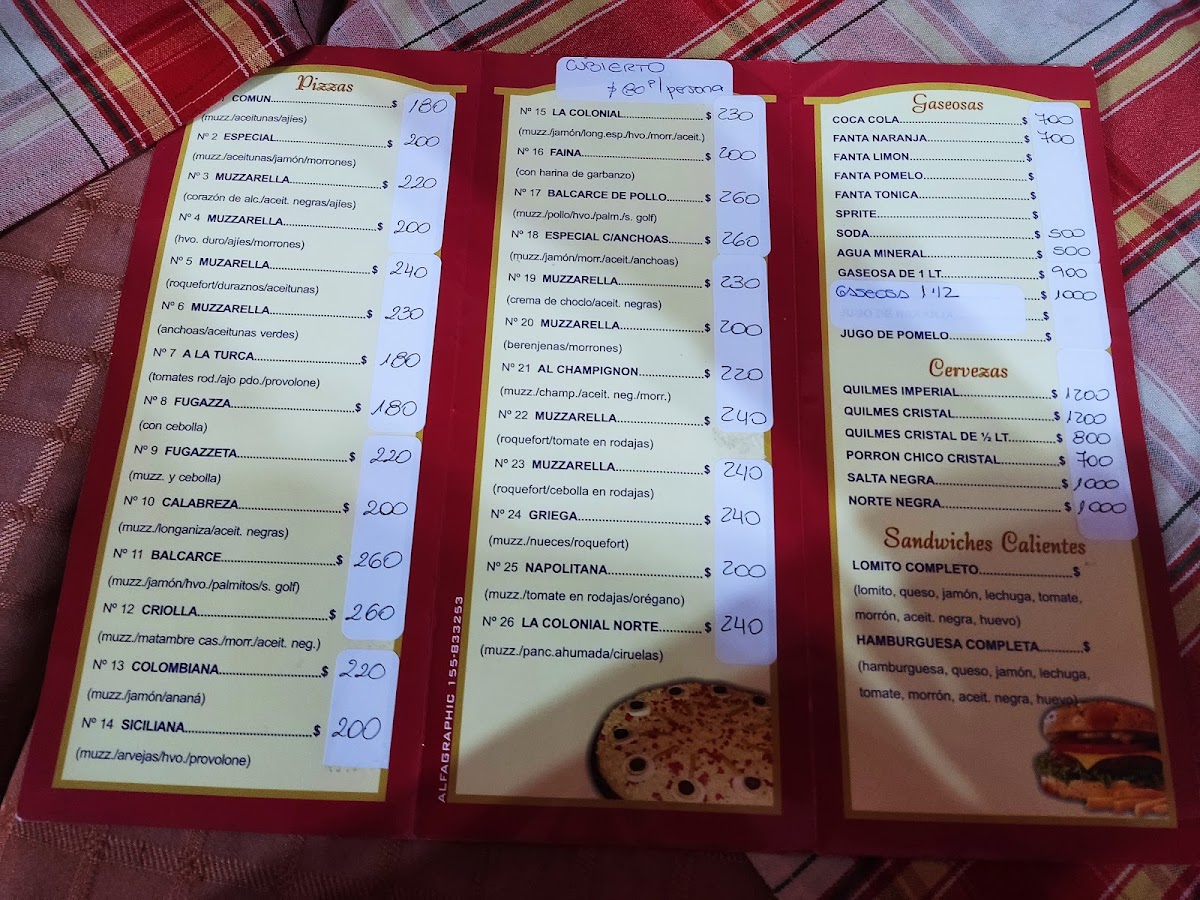 Pizzas
COMUN $ 180
(muzz./aceitunas/ajíes)
Nº 2 ESPECIAL $ 200
(muzz./aceitunas/jamón/morrones)
Nº 3 MUZZARELLA $ 220
(corazón de alc./aceit. negras/ajíes)
Nº 4 MUZZARELLA $ 200
(hvo. duro/ajíes/morrones)
Nº 5 MUZARELLA $ 240
(roquefort/duraznos/aceitunas)
Nº 6 MUZZARELLA $ 230
(anchoas/aceitunas verdes)
Nº 7 A LA TURCA $ 180
(tomates rod./ajo pdo./provolone)
Nº 8 FUGAZZA $ 180
(con cebolla)
Nº 9 FUGAZZETA $ 220
(muzz. y cebolla)
Nº 10 CALABREZA $ 200
(muzz./longaniza/aceit. negras)
Nº 11 BALCARCE $ 260
(muzz./jamón/hvo./palmitos/s. golf)
Nº 12 CRIOLLA $ 260
(muzz./matambre cas./morr./aceit. neg.)
Nº 13 COLOMBIANA $ 220
(muzz./jamón/ananá)
Nº 14 SICILIANA $ 200
(muzz./arvejas/hvo./provolone)
CUBIERTO
$ 80 p/persona
Nº 15 LA COLONIAL $ 230
(muzz./jamón/long.esp./hvo./morr./aceit.)
Nº 16 FAINA $ 200
(con harina de garbanzo)
Nº 17 BALCARCE DE POLLO $ 260
(muzz./pollo/hvo./palm./s. golf)
Nº 18 ESPECIAL C/ANCHOAS $ 260
(muzz./jamón/morr./aceit./anchoas)
Nº 19 MUZZARELLA $ 230
(crema de choclo/aceit. negras)
Nº 20 MUZZARELLA $ 200
(berenjenas/morrones)
Nº 21 AL CHAMPIGNON $ 220
(muzz./champ./aceit. neg./morr.)
Nº 22 MUZZARELLA $ 240
(roquefort/tomate en rodajas)
Nº 23 MUZZARELLA $ 240
(roquefort/cebolla en rodajas)
Nº 24 GRIEGA $ 240
(muzz./nueces/roquefort)
Nº 25 NAPOLITANA $ 200
(muzz./tomate en rodajas/orégano)
Nº 26 LA COLONIAL NORTE $ 240
(muzz./panc.ahumada/ciruelas)
ALFAGRAPHIC 155-833253
Gaseosas
COCA COLA $ 700
FANTA NARANJA $ 700
FANTA LIMON $
FANTA POMELO $
FANTA TONICA $
SPRITE $
SODA $ 500
AGUA MINERAL $ 500
GASEOSA DE 1 LT. $ 900
GASEOSA 1 1/2 $ 1000
$
JUGO DE POMELO $
Cervezas
QUILMES IMPERIAL $ 1200
QUILMES CRISTAL $ 1200
QUILMES CRISTAL DE ½ LT. $ 800
PORRON CHICO CRISTAL $ 700
SALTA NEGRA $ 1000
NORTE NEGRA $ 1000
Sandwiches Calientes
LOMITO COMPLETO $
(lomito, queso, jamón, lechuga, tomate,
morrón, aceit. negra, huevo)
HAMBURGUESA COMPLETA $
(hamburguesa, queso, jamón, lechuga,
tomate, morrón, aceit. negra, huevo)